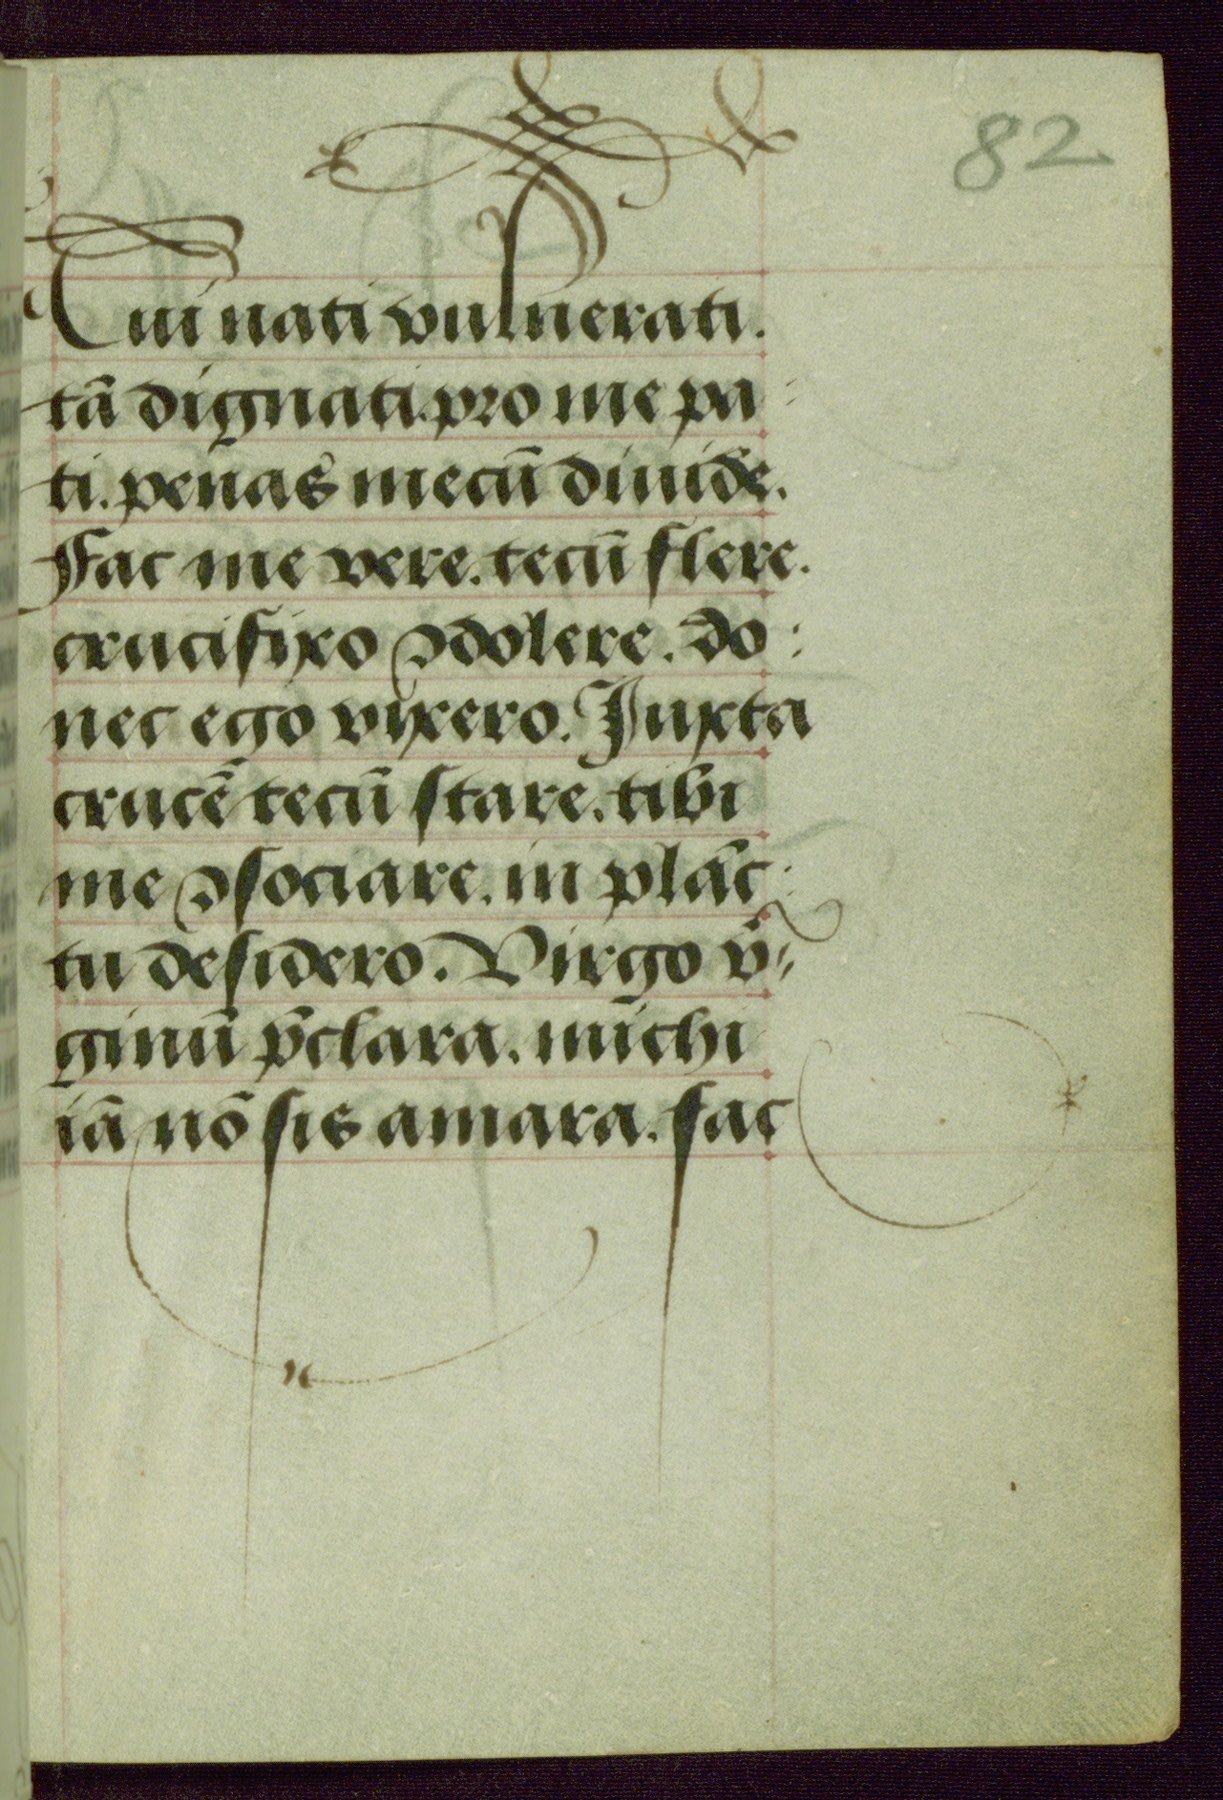 82
Tui nati vulnerati.
tā dignati.pro me pa
ti. penas mecū diuide.
Fac me vere. tecū flere.
crucifixo ꝯdolere. do:
nec ego vixero. Iuxta
crucē tecū stare. tibi
me ꝯsociare. in plāc:
tu desidero. Virgo v̄
ginū p̄clara. michi
iā nō sis amara. fac